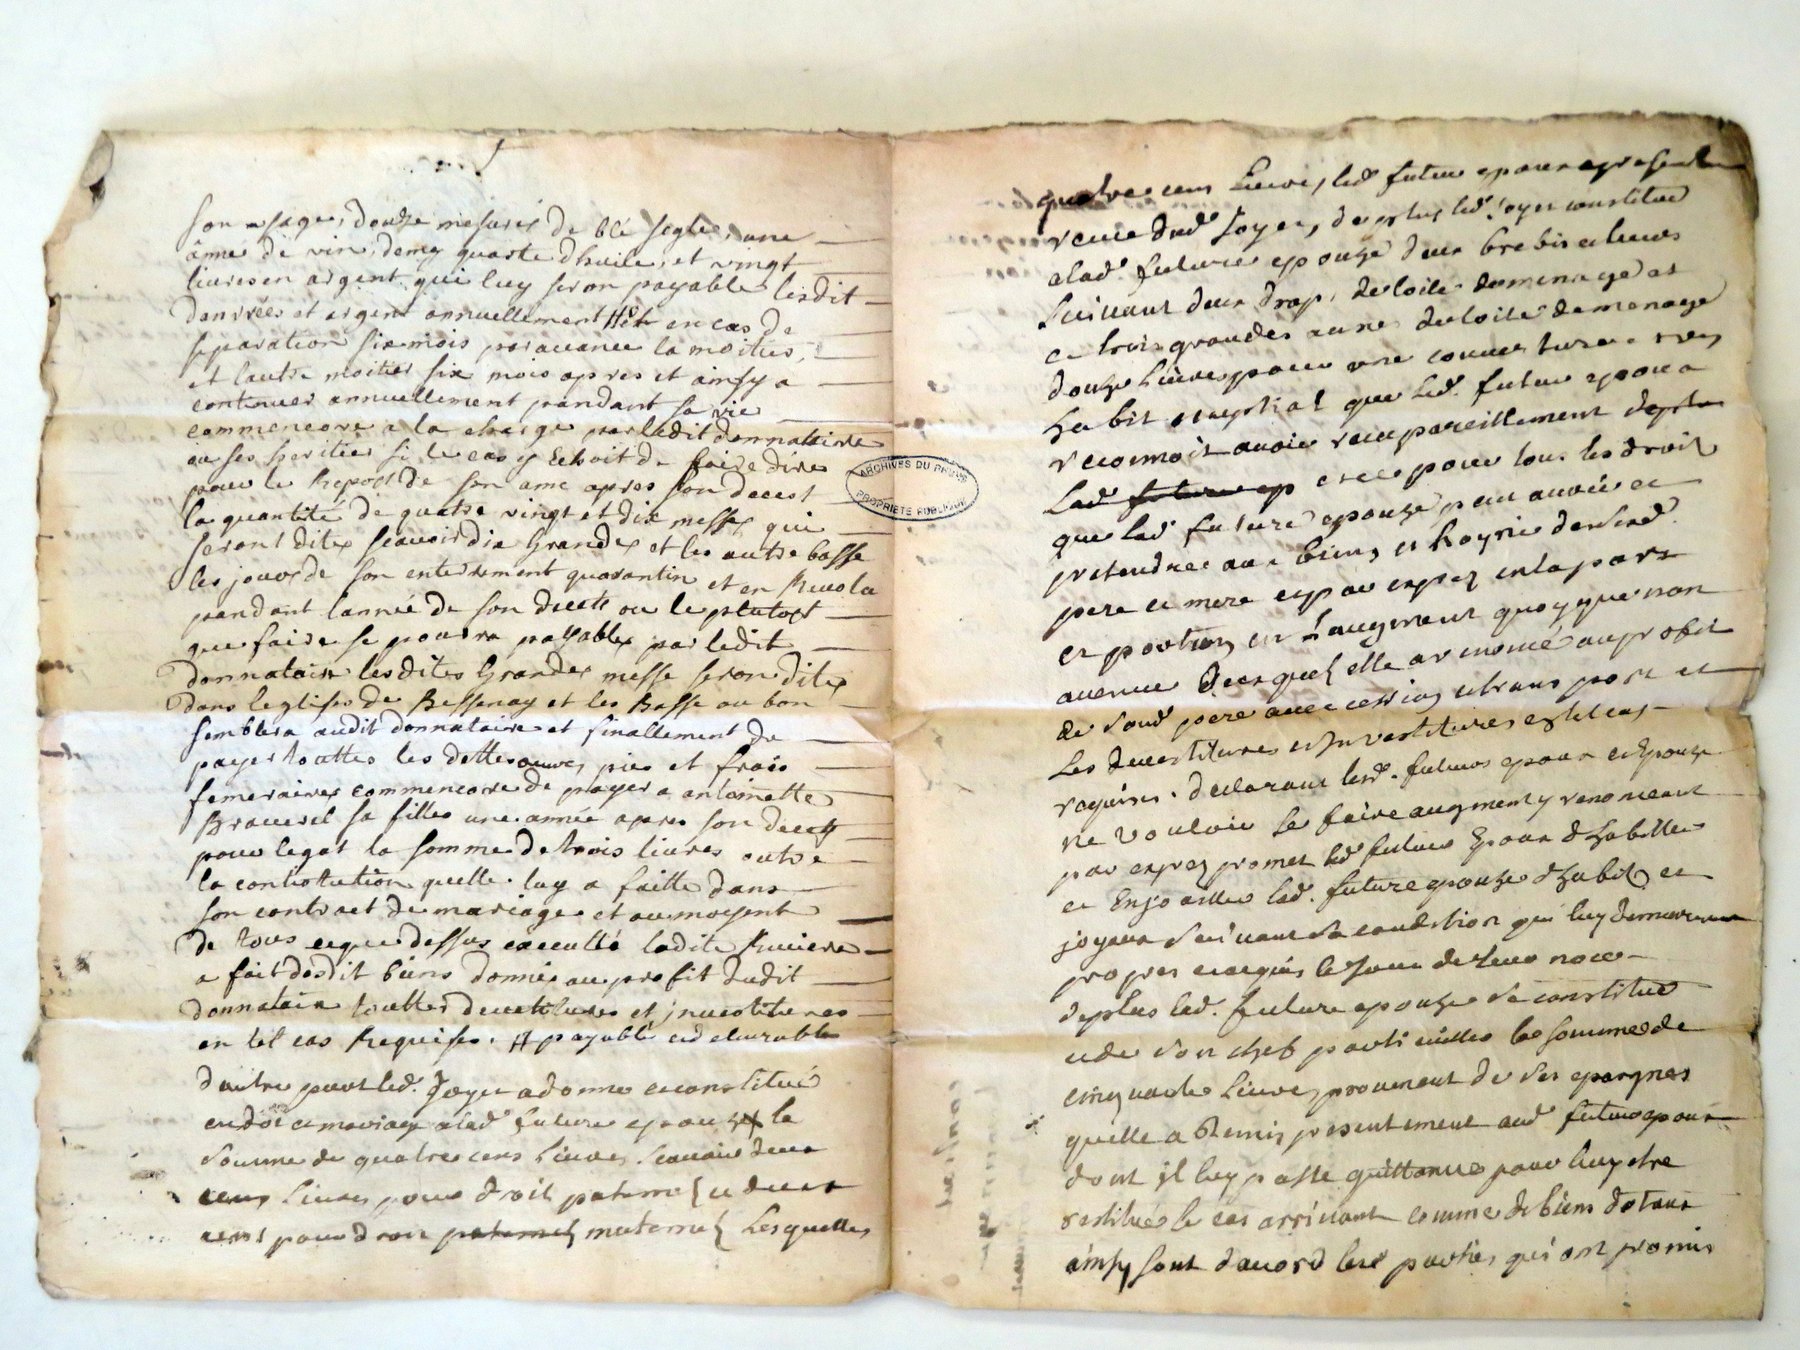 son usage, douze mesures de blé segle, une
ânné de vin, demy quarte dhuile, et vingt
livres en argent qui luy seron payable lesdit
danrrées et argent annuellement en cas de
separation six mois par avance la moitier,
et lautre moitier six mois apres et ainsy a
continuer annuellement pandant sa vie
commencore a la charge par ledit donnataire
ou ses heritier si le cas y Echoit de faire dires
pour le Repost de son ame apres son decest
la quantité de quatre vingt et dix messes qui
seront dites scavoir dix Grandes et les autre basse
les jours de son enterrement quarantin et en Revolu
pandant lannée de son decest ou le plutost
que faire se pourra payables par ledit
donnataire lesdites Grandes messe seron dites
dans leglises de Bessenay et les Basse ou bon
semblera audit donnataire et finallement de
payer touttes les dettes œuvres pies et frais
funeraires commencore de payer a antoinette
sa filles une année apres son decest
pour legat la somme de trois livres outre
la constitution quelle luy a faitte dans
son contract de mariage et au moyent
de tous ceque dessus executté ladite Riviere
a fait desdit biens donnés au profit dudit
donnataire touttes devetitures et jnvestitures
en tel cas Requises. payable
dautre part led. Joyer a donné et constitué
en dot et mariage a lad future epouze la
somme de quatre cens livres scavoir deux
cens livres pour droit paternel et deux
cens pour droit paternel maternel Lesquelles
quatre cens livres led futur epoux a presentem
receu dud Joyer, de plus led Joyer constitue
a lad. future epouze deux brebis et leurs
suivant deux draps de toile de menage et
et trois grandes aunes de toile de menage
douze livres pour une couverture et ses
habit nuptial que led. futur epoux
reconnoit avoir receu pareillement
Lad future ep et ce pour tous les droit
que lad future epouze peut avoir et
pretendre aux biens et hoyrie de sesd.
pere et mere et par expres en la part
et portion en Laugment quoyque non
avenue Desquels elle a renoncé au profit
de sond pere avec cession et transport et
Les devestitures et jnvestitures en tel cas
requises. declarant lesd. futurs epoux et Epouze
ne vouloir se faire augment y renonceant
par expres promet led futur Epoux dhabiller
et Enjoailler lad. future epouze dhabits et
joyaux suivant sa condition qui luy demeureront
propres et acquis le jour de leur noce
de plus lad. future epouze se constitue
et de son chef particulier la somme de
cinquante livres provenant de ses epargnes
quelle a Remis presentement aud futur epoux
dont jl luy passe quittance pour luy etre
restituée le cas arrivant comme de biens dotaux
ainsy sont dacord lesd parties qui ont promis
ARCHIVES DU RHÔNE
PROPRIÉTÉ PUBLIQUE